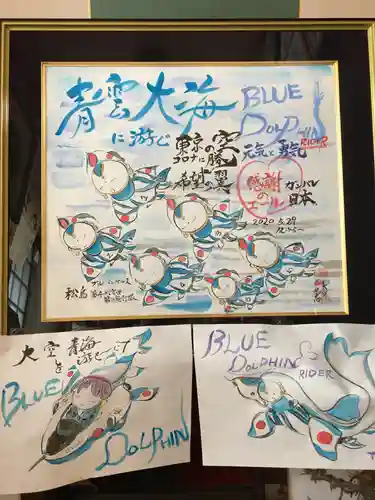 青雲大海
に游ぶ
BLUE
DOLPHIN
RIDER
東京の空
コロナに勝
希望の翼
元気と勇気
感謝
の
エール
ガンバレ
日本
2020 5.29
ブルーインパルス
松島
大空を青海
游ぐ
BLUE
DOLPHIN
BLUE
DOLPHIN
RIDER